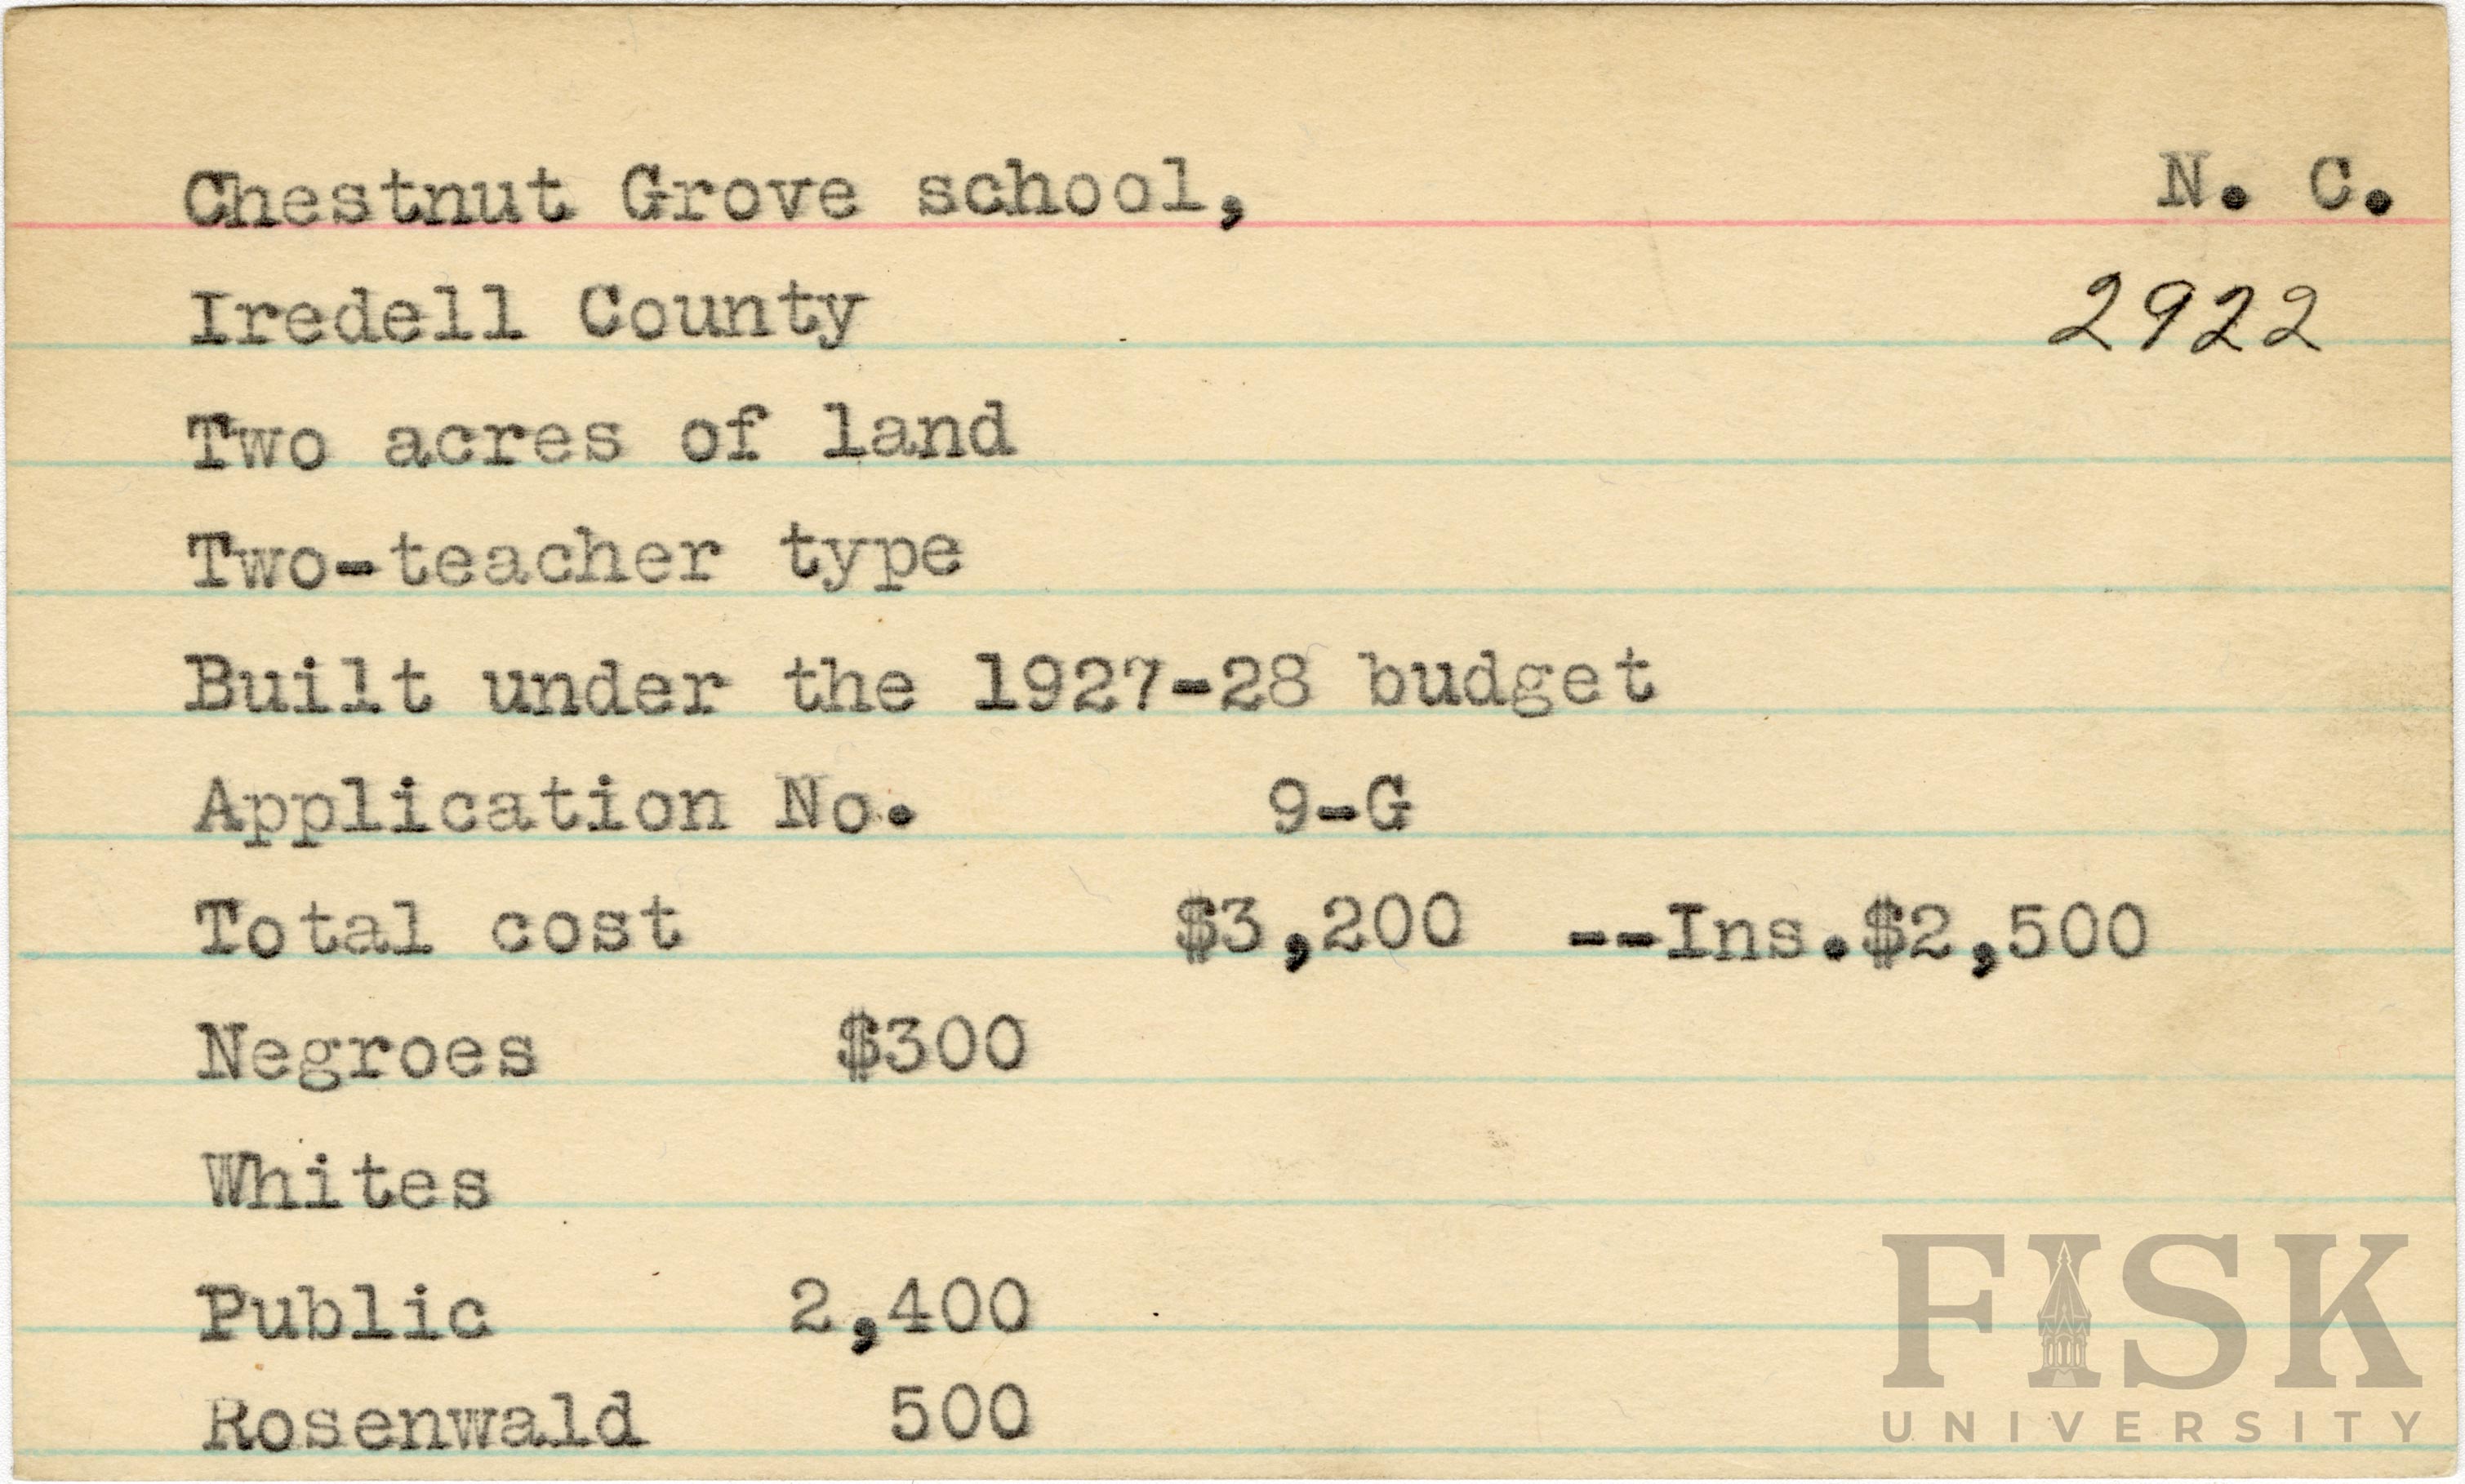 Chestnut Grove school, N. C.
Iredell County 2922
Two acres of land
Two-teacher type
Built under the 1927-28 budget
Application No. 9-G
Total cost $3,200 --Ins.$2,500
Negroes $300
Whites
Public 2,400
Rosenwald 500
FISK
UNIVERSITY